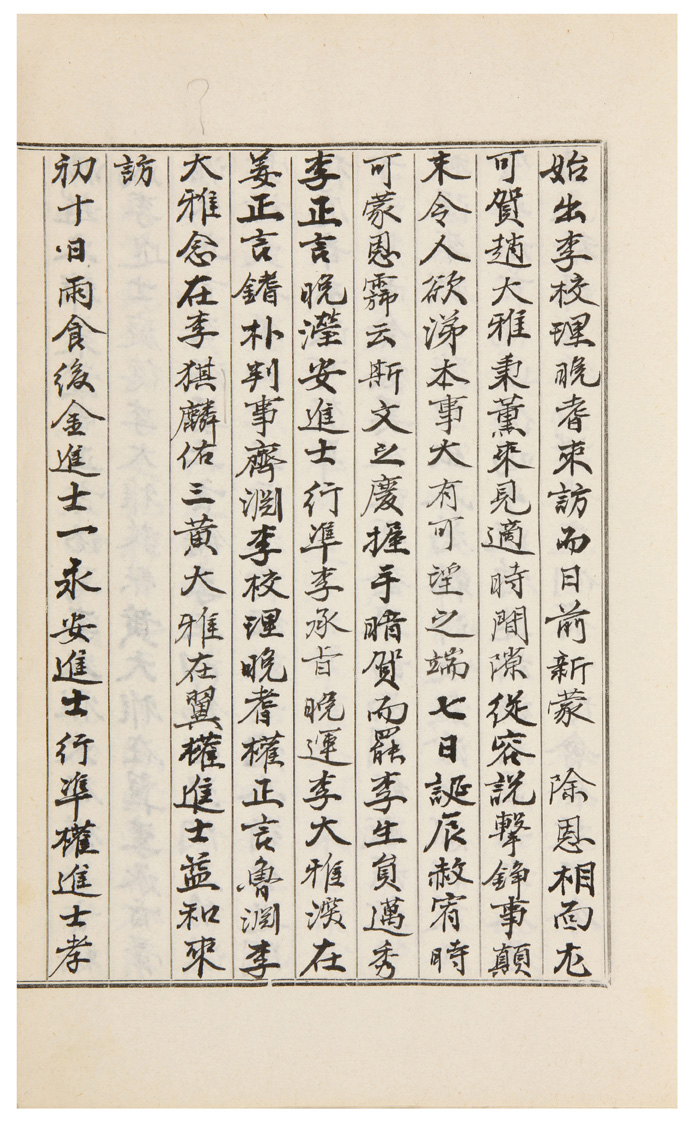 始出李校理晩耆來訪而日前新蒙 除恩相面尤
可賀趙大雅秉薰來見適時間隙從容說擊錚事顚
末令人欲涕本事大有可望之端七日誕辰赦宥時
可蒙恩霈云斯文之慶握手暗賀而罷李生員邁秀
李正言晩瀅安進士行準李承旨晩運李大雅漢在
姜正言鐥朴判事齊淵李校理晩耆權正言魯淵李
大雅念在李猉麟佑三黃大雅在翼權進士益和來
訪
初十日雨食後金進士一永安進士行準權進士孝